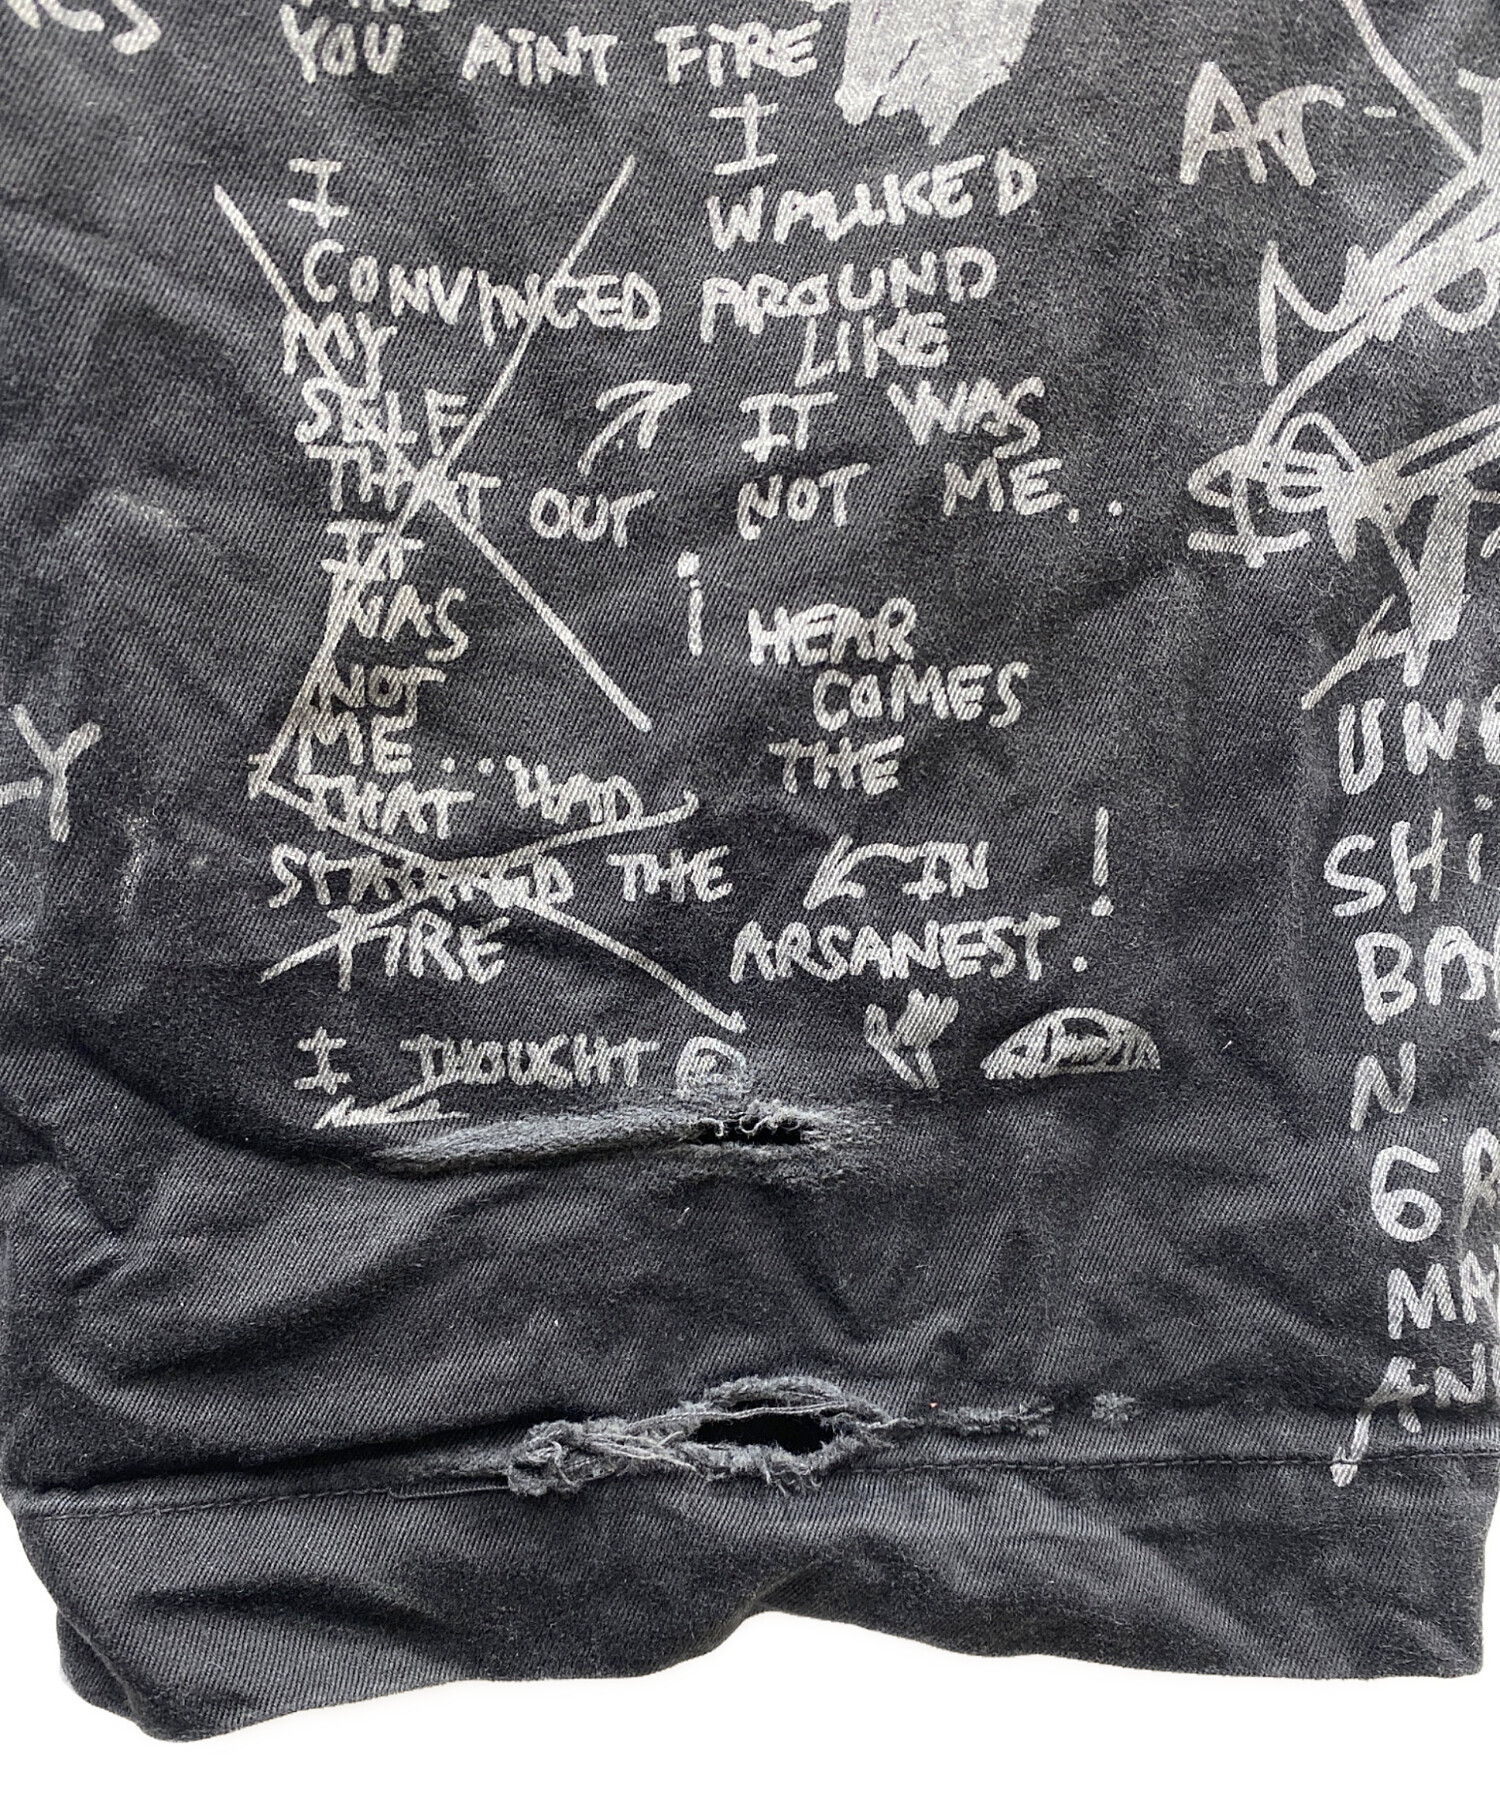 YOU AINT FIRE
I
CONVINCED
MY
SELF
THAT
IT
WAS
NOT
ME..
THAT HAD
STARTED THE
FIRE
I THOUGHT
OUT
I
WALLKED
AROUND
LIKE
IT WAS
NOT ME..
i HEAR
COMES
THE
IN
ARSANEST. !
Ar-
N
UN
SHi
BA
N
G
MA
AN
Y